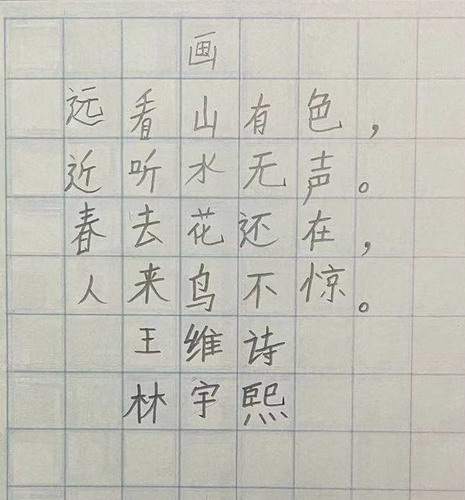 画
远看山有色，
近听水无声。
春去花还在，
人来鸟不惊。
王维诗
林宇熙